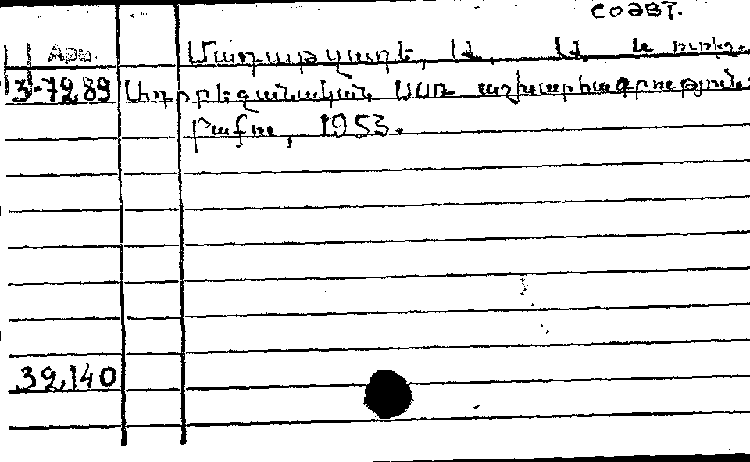 соавт.
Арм. Մադաթզադե, Ա. Ա. և ուրիշ.
3-7289 Ադրբեջանական ՍՍՌ աշխարհագրություն:
Բաքու, 1953.
39,140